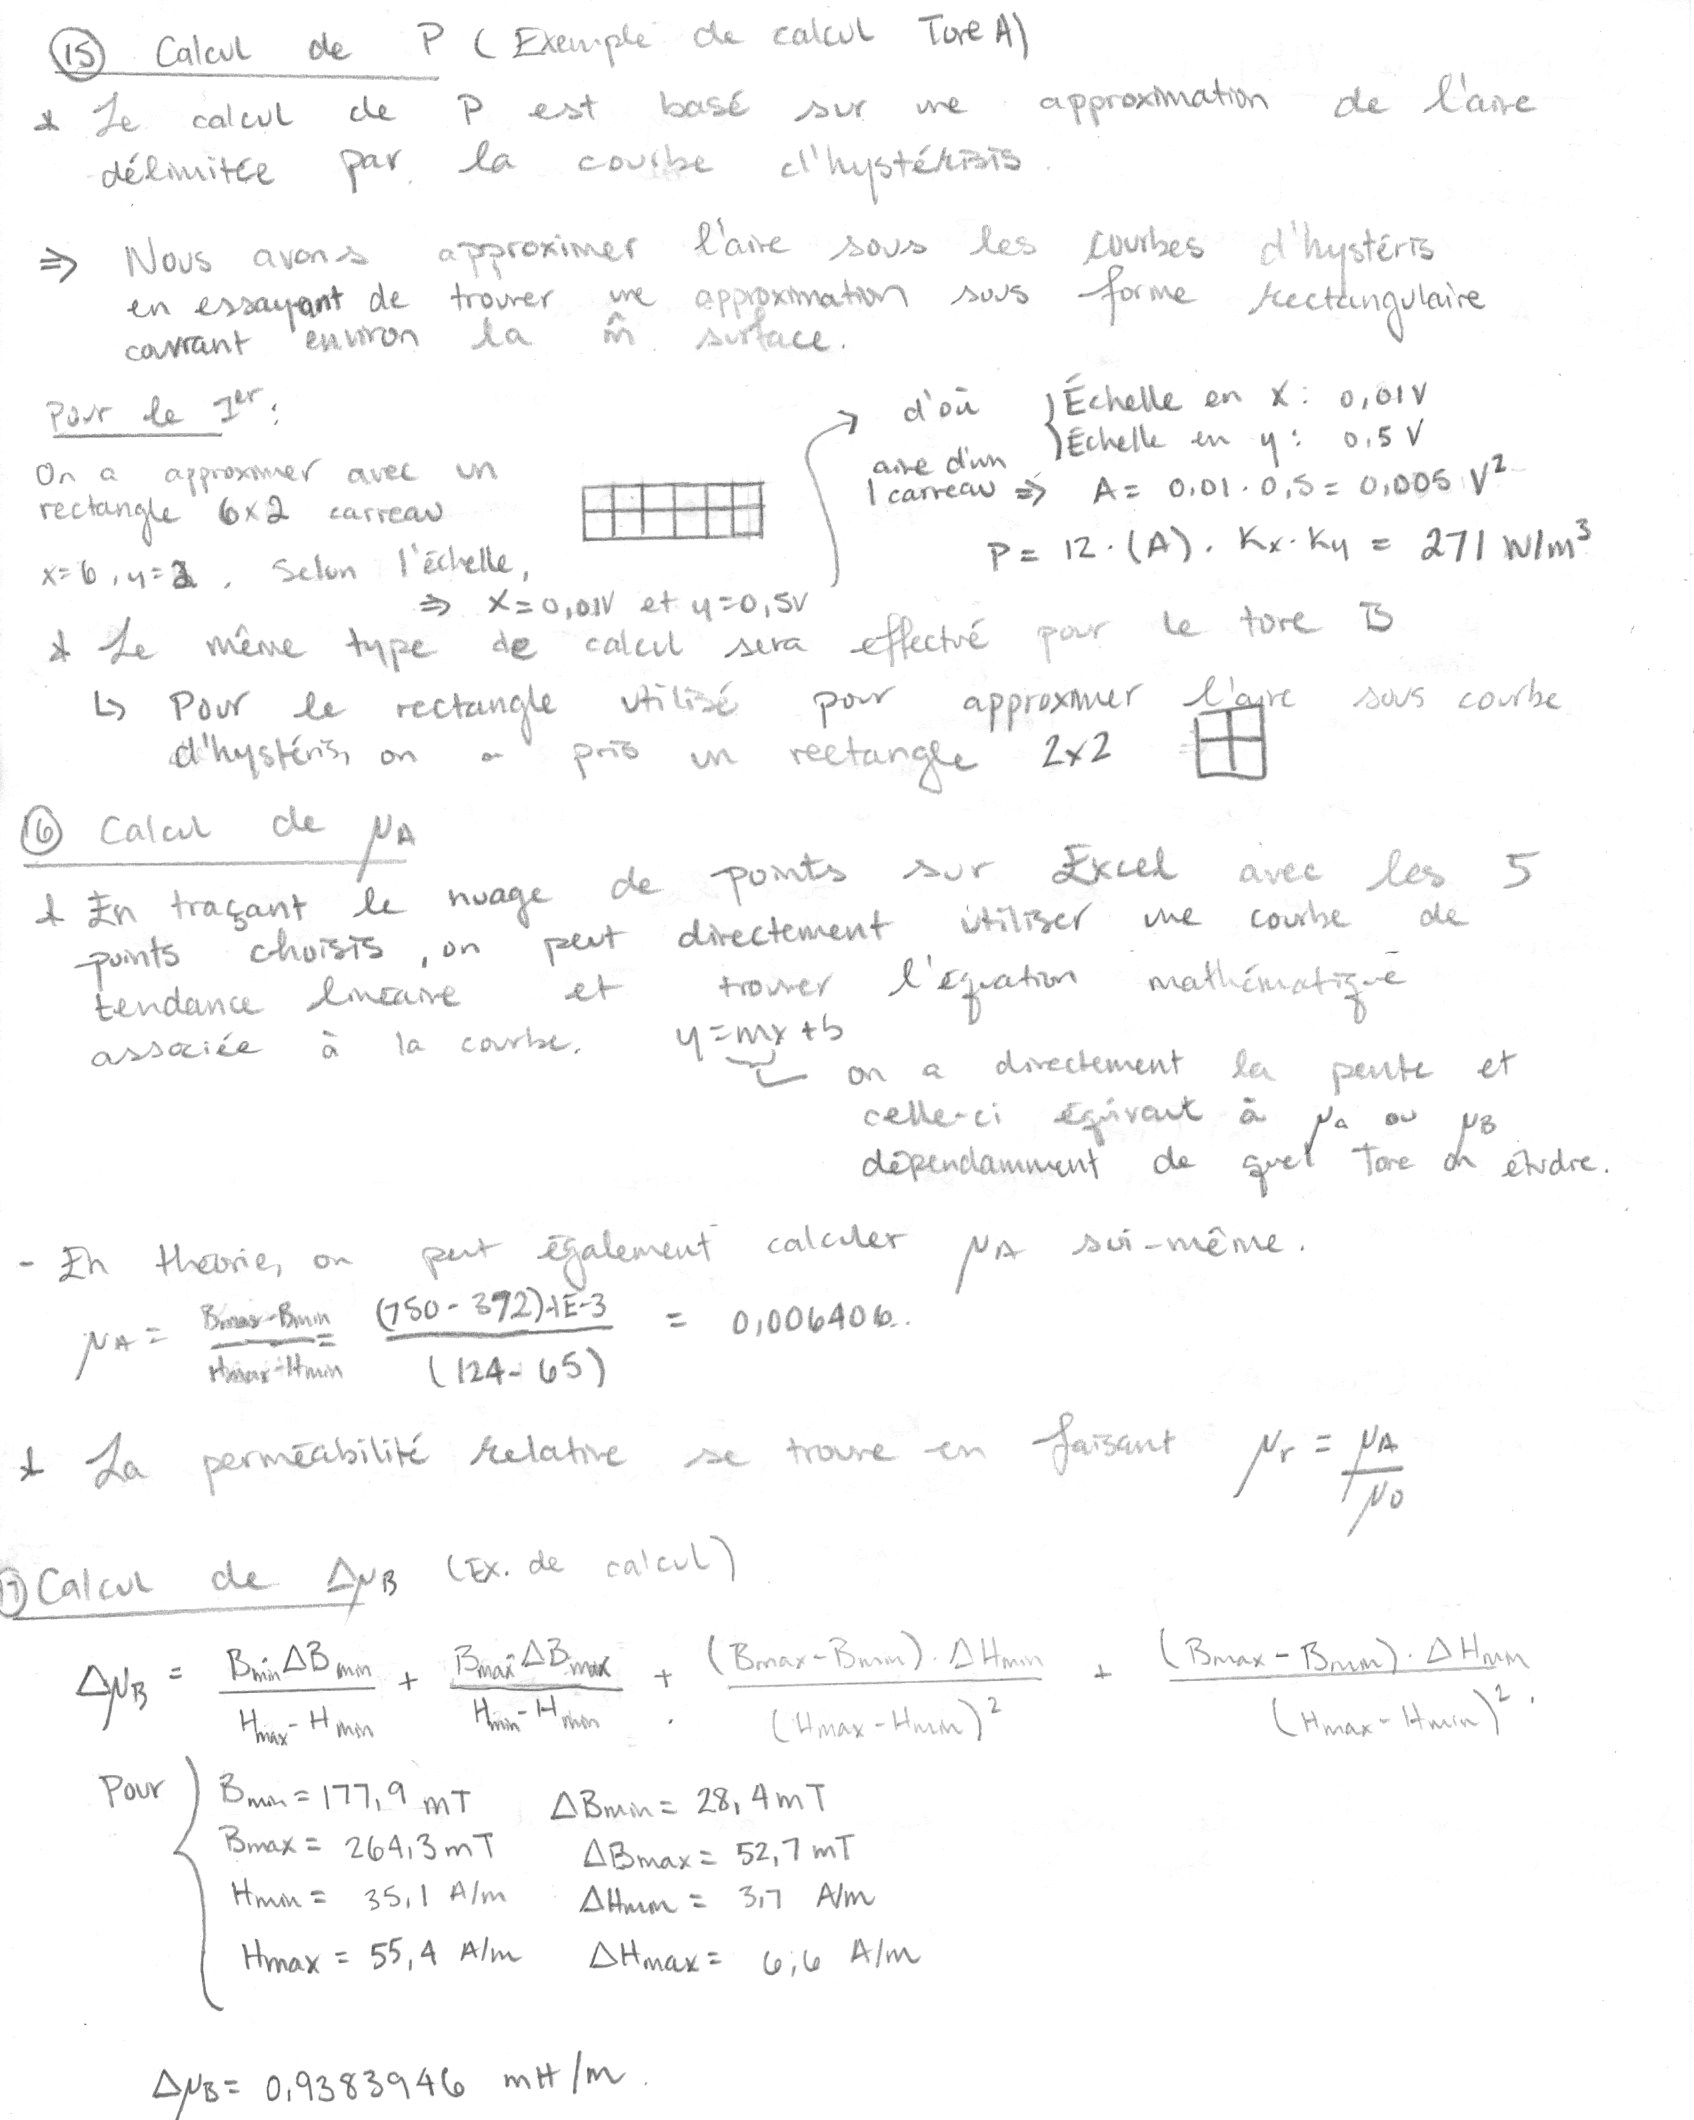 15 Calcul de P (Exemple de calcul Tore A)
* Le calcul de P est basé sur une approximation de l'aire
délimitée par la courbe d'hystérisis.
⇒ Nous avons approximer l'aire sous les courbes d'hystéris
en essayant de trouver une approximation sous forme rectangulaire
couvrant environ la m̂ surface.
Pour le 1er :
On a approximer avec un
rectangle 6x2 carreau
x=6, y=2. Selon l'échelle,
⇒ x=0,01V et y=0,5V
→ d'où { Échelle en x : 0,01V
Échelle en y : 0.5 V
aire d'un
1 carreau ⇒ A = 0,01 · 0,5 = 0,005 V²
P = 12 · (A) · Kx · Ky = 271 W/m³
* Le même type de calcul sera effectué pour le tore B
↳ Pour le rectangle utilisé pour approximer l'aire sous courbe
d'hystéris, on a pris un rectangle 2x2
16 Calcul de μA
* En traçant le nuage de points sur Excel avec les 5
points choisis, on peut directement utiliser une courbe de
tendance linéaire et trouver l'équation mathématique
associée à la courbe. y=mx+b
on a directement la pente et
celle-ci équivaut à μa ou μB
dépendamment de quel Tore on étudre.
- En théorie, on peut également calculer μA soi-même.
μA = (Bmax-Bmin)/(Hmax-Hmin) = (750-392)·1E-3/(124-65) = 0,006406.
* La perméabilité relative se trouve en faisant μr = μA/μ0
17 Calcul de ΔμB (Ex. de calcul)
ΔμB = BminΔBmin/(Hmax-Hmin) + BmaxΔBmax/(Hmin-Hmin) + (Bmax-Bmin)·ΔHmin/(Hmax-Hmin)² + (Bmax-Bmin)·ΔHmin/(Hmax-Hmin)².
Pour { Bmin = 177,9 mT ΔBmin = 28,4 mT
Bmax = 264,3 mT ΔBmax = 52,7 mT
Hmin = 35,1 A/m ΔHmin = 3,7 A/m
Hmax = 55,4 A/m ΔHmax = 6,6 A/m
ΔμB = 0,9383946 mH/m.